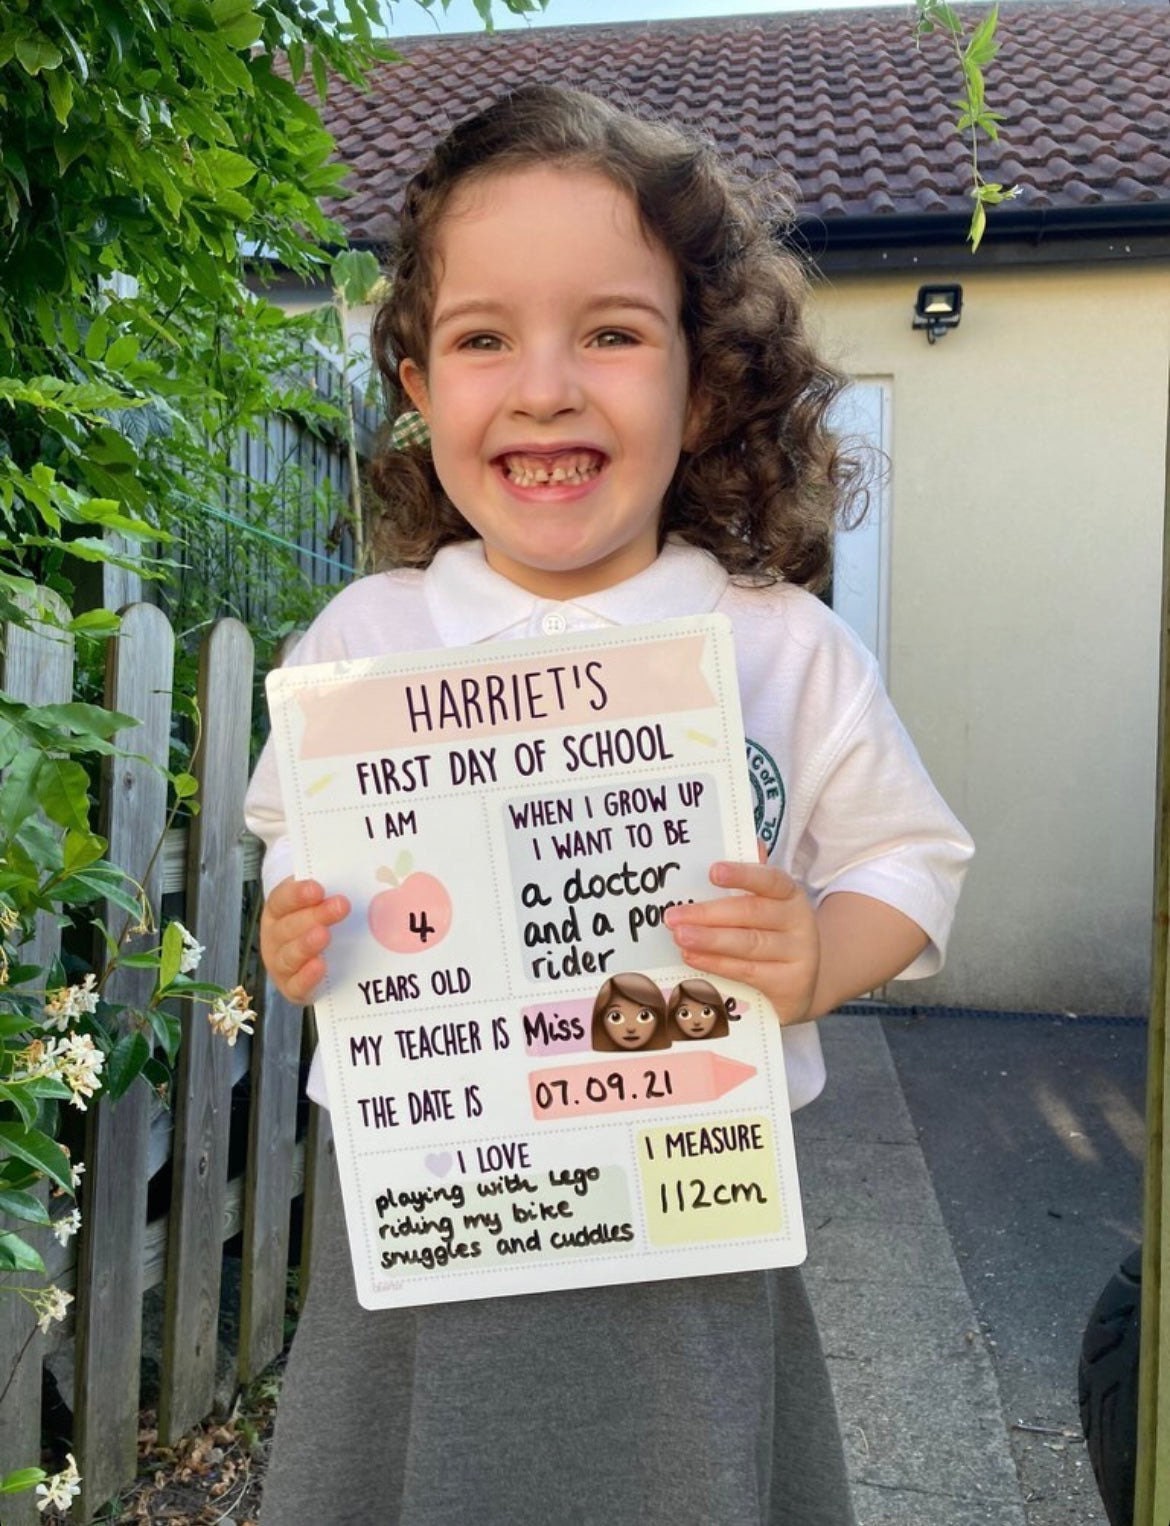 HARRIET'S
FIRST DAY OF SCHOOL
I AM
4
YEARS OLD
WHEN I GROW UP
I WANT TO BE
a doctor
and a pony
rider
MY TEACHER IS Miss
THE DATE IS 07.09.21
I LOVE
playing with Lego
riding my bike
snuggles and cuddles
I MEASURE
112cm
CofE